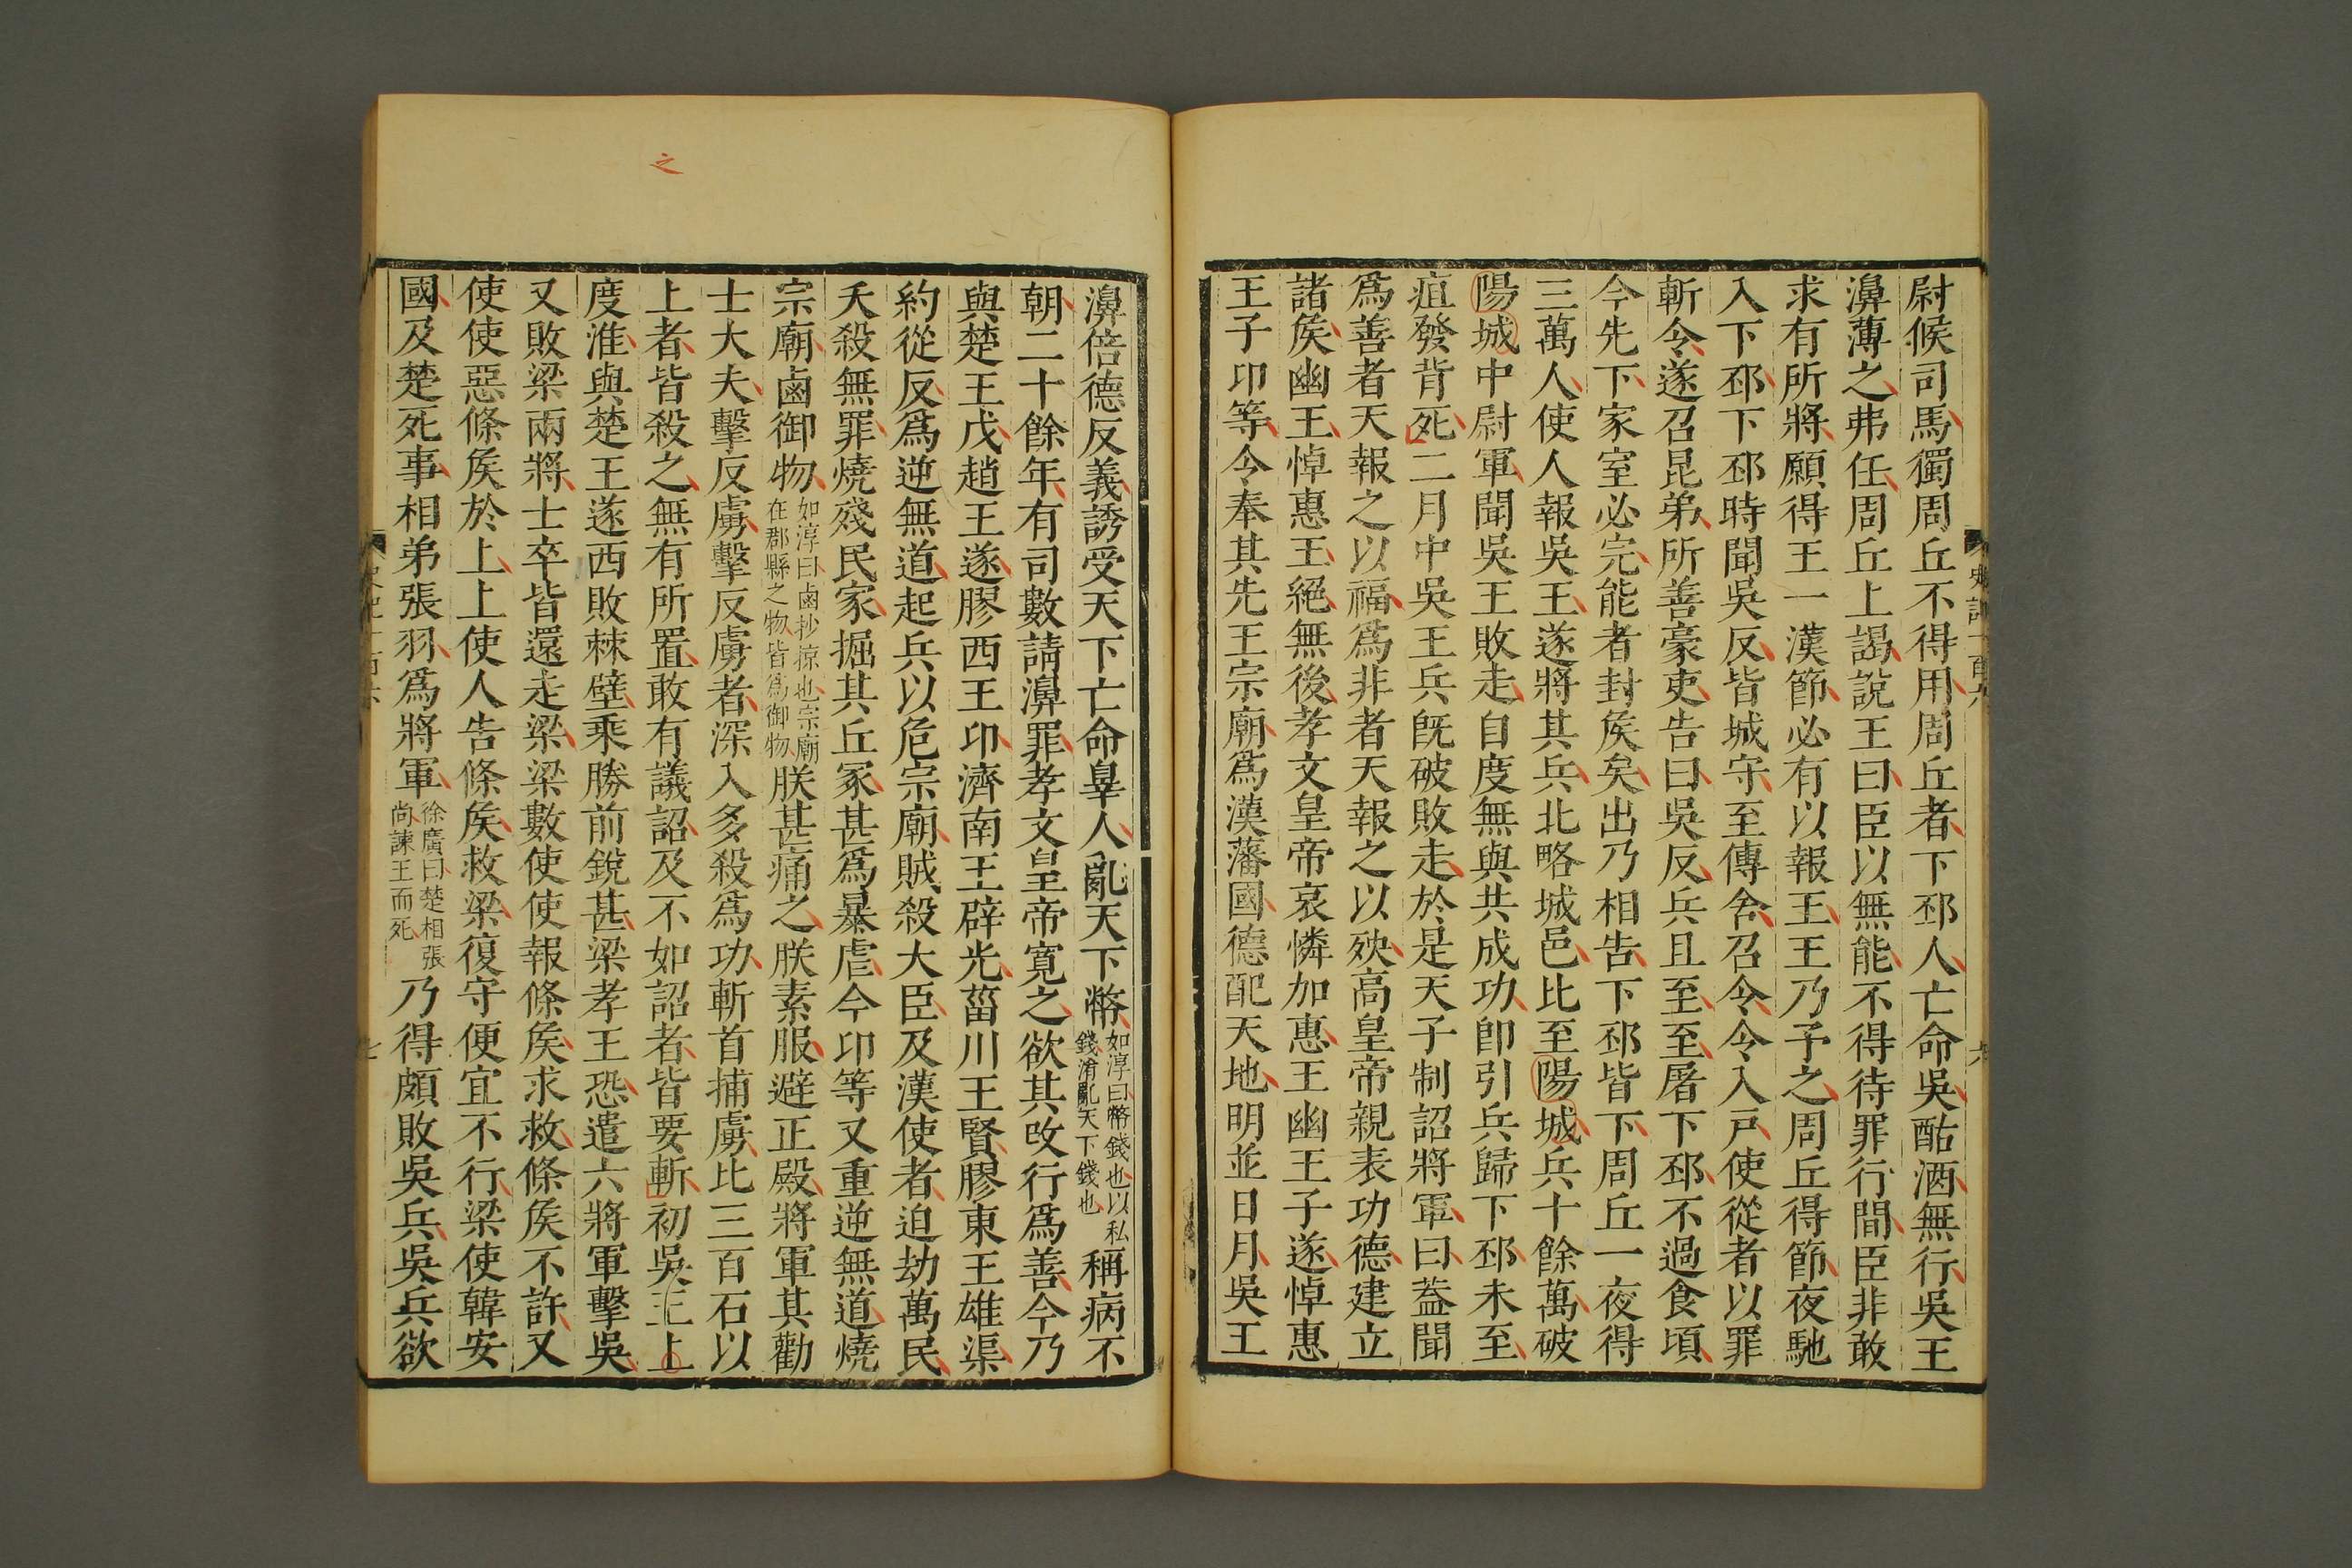 尉候司馬獨周丘不得用周丘者下邳人亡命吳酤酒無行吳王
濞薄之弗任周丘上謁說王曰臣以無能不得待罪行間臣非敢
求有所將願得王一漢節必有以報王王乃予之周丘得節夜馳
入下邳下邳時聞吳反皆城守至傳舍召令令入戸使從者以罪
斬令遂召昆弟所善豪吏告曰吳反兵且至至屠下邳不過食頃
今先下家室必完能者封矦矣出乃相告下邳皆下周丘一夜得
三萬人使人報吳王遂將其兵北略城邑比至陽城兵十餘萬破
陽城中尉軍聞吳王敗走自度無與共成功卽引兵歸下邳未至
疽發背死二月中吳王兵旣破敗走於是天子制詔將軍曰葢聞
爲善者天報之以福爲非者天報之以殃高皇帝親表功德建立
諸矦幽王悼惠王絕無後孝文皇帝哀憐加惠王幽王子遂悼惠
王子卬等令奉其先王宗廟爲漢藩國德配天地明並日月吳王
史記一百六
六
濞倍德反義誘受天下亡命辠人亂天下幣如淳曰幣錢也以私錢淆亂天下錢也稱病不
朝二十餘年有司數請濞罪孝文皇帝寬之欲其改行爲善今乃
與楚王戊趙王遂膠西王卬濟南王辟光菑川王賢膠東王雄渠
約從反爲逆無道起兵以危宗廟賊殺大臣及漢使者迫劫萬民
夭殺無罪燒殘民家掘其丘冢甚爲暴虐今卬等又重逆無道燒
宗廟鹵御物如淳曰鹵抄掠也宗廟在郡縣之物皆爲御物朕甚痛之朕素服避正殿將軍其勸
士大夫擊反虜擊反虜者深入多殺爲功斬首捕虜比三百石以
上者皆殺之無有所置敢有議詔及不如詔者皆要斬初吳王上
之
度淮與楚王遂西敗棘壁乘勝前銳甚梁孝王恐遣六將軍擊吳
又敗梁兩將士卒皆還走梁梁數使使報條矦求救條矦不許又
使使惡條矦於上上使人告條矦救梁復守便宜不行梁使韓安
國及楚死事相弟張羽爲將軍徐廣曰楚相張尚諫王而死乃得頗敗吳兵吳兵欲
七